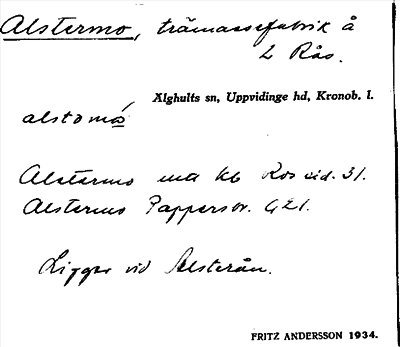 Alstermo, trämassefabrik å
L Rås.
Älghults sn, Uppvidinge hd, Kronob. l.
alstomó
Alstermo
Alstermo Pappersbr. G21.
Ligger vid Alsterån.
FRITZ ANDERSSON 1934.